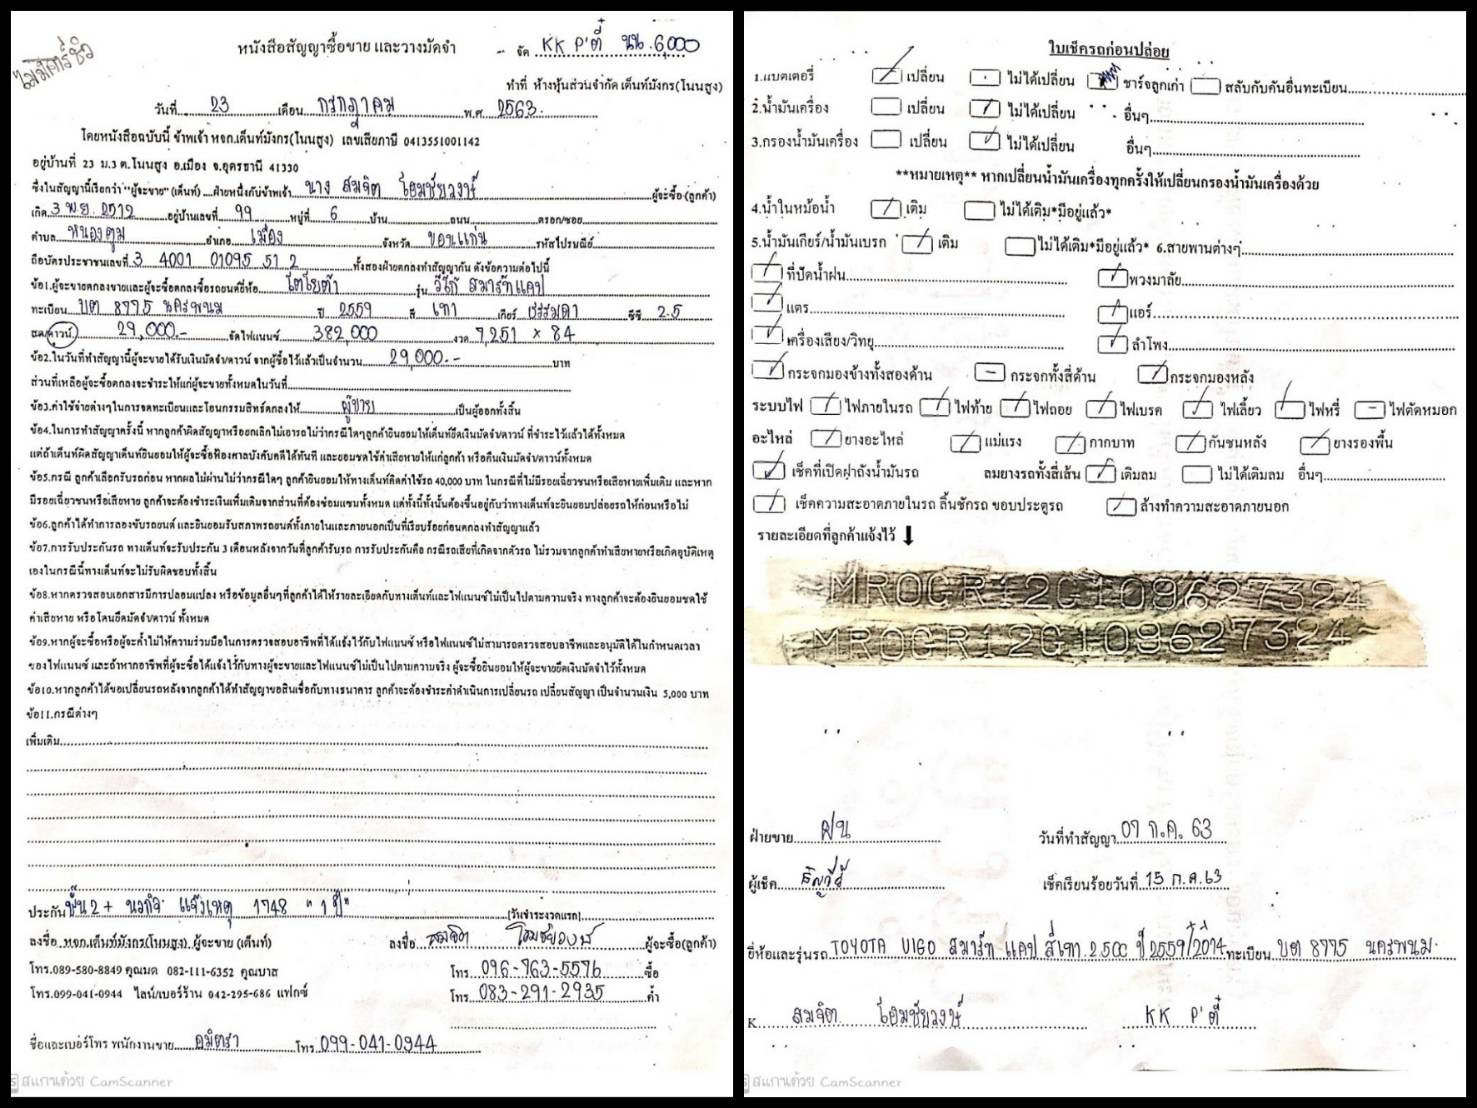 ไม่มีคาร์ซิว
หนังสือสัญญาซื้อขาย และวางมัดจำ
จัด KK P'ตี๋ นน.6,000
ทำที่ ห้างหุ้นส่วนจำกัด เต็นท์มังกร(โนนสูง)
วันที่ 23 เดือน กรกฎาคม พ.ศ 2563
โดยหนังสือฉบับนี้ ข้าพเจ้า หจก.เต็นท์มังกร(โนนสูง) เลขเสียภาษี 0413551001142
อยู่บ้านที่ 23 ม.3 ต.โนนสูง อ.เมือง จ.อุดรธานี 41330
ซึ่งในสัญญานี้เรียกว่า "ผู้จะขาย" (เต็นท์) ฝ่ายหนึ่งกับข้าพเจ้า นาง สมจิต โฮมชัยวงษ์ ผู้จะซื้อ(ลูกค้า)
เกิด 3 พ.ย. 2512 อยู่บ้านเลขที่ 99 หมู่ที่ 6 บ้าน ถนน ตรอก/ซอย
ตำบล หนองตูม อำเภอ เมือง จังหวัด ขอนแก่น รหัสไปรษณีย์
ถือบัตรประชาชนเลขที่ 3 4001 01095 51 2 ทั้งสองฝ่ายตกลงทำสัญญากัน ดังข้อความต่อไปนี้
ข้อ1.ผู้จะขายตกลงขายและผู้จะซื้อตกลงซื้อรถยนต์ยี่ห้อ โตโยต้า รุ่น วีโก้ สมาร์ทแคป
ทะเบียน บต 8775 นครพนม ปี 2559 สี เทา เกียร์ ธรรมดา ซีซี 2.5
สด/ดาวน์ 29,000.- จัดไฟแนนซ์ 382,000 งวด 7,251 × 84
ข้อ2.ในวันที่ทำสัญญานี้ผู้จะขายได้รับเงินมัดจำ/ดาวน์ จากผู้ซื้อไว้แล้วเป็นจำนวน 29,000.- บาท
ส่วนที่เหลือผู้จะซื้อตกลงจะชำระให้แก่ผู้จะขายทั้งหมดในวันที่
ข้อ3.ค่าใช้จ่ายต่างๆในการจดทะเบียนและโอนกรรมสิทธ์ตกลงให้ ผู้ขาย เป็นผู้ออกทั้งสิ้น
ข้อ4.ในการทำสัญญาครั้งนี้ หากลูกค้าผิดสัญญาหรือยกเลิกไม่เอารถไม่ว่ากรณีใดๆลูกค้ายินยอมให้เต็นท์ยึดเงินมัดจำ/ดาวน์ ที่ชำระไว้แล้วได้ทั้งหมด
แต่ถ้าเต็นท์ผิดสัญญาเต็นท์ยินยอมให้ผู้จะซื้อฟ้องศาลบังคับคดีได้ทันที และยอมชดใช้ค่าเสียหายให้แก่ลูกค้า หรือคืนเงินมัดจำ/ดาวน์ทั้งหมด
ข้อ5.กรณี ลูกค้าเลือกรับรถก่อน หากผลไม่ผ่านไม่ว่ากรณีใดๆ ลูกค้ายินยอมให้ทางเต็นท์คิดค่าใช้รถ 40,000 บาท ในกรณีที่ไม่มีรอยเฉี่ยวชนหรือเสียหายเพิ่มเติม และหาก
มีรอยเฉี่ยวชนหรือเสียหาย ลูกค้าจะต้องชำระเงินเพิ่มเติมจากส่วนที่ต้องซ่อมแซมทั้งหมด แต่ทั้งนี้ทั้งนั้นต้องขึ้นอยู่กับว่าทางเต็นท์จะยินยอมปล่อยรถให้ก่อนหรือไม่
ข้อ6.ลูกค้าได้ทำการลองขับรถยนต์ และยินยอมรับสภาพรถยนต์ทั้งภายในและภายนอกเป็นที่เรียบร้อยก่อนตกลงทำสัญญาแล้ว
ข้อ7.การรับประกันรถ ทางเต็นท์จะรับประกัน 3 เดือนหลังจากวันที่ลูกค้ารับรถ การรับประกันคือ กรณีรถเสียที่เกิดจากตัวรถ ไม่รวมจากลูกค้าทำเสียหายหรือเกิดอุบัติเหตุ
เองในกรณีนี้ทางเต็นท์จะไม่รับผิดชอบทั้งสิ้น
ข้อ8.หากตรวจสอบเอกสารมีการปลอมแปลง หรือข้อมูลอื่นๆที่ลูกค้าได้ให้รายละเอียดกับทางเต็นท์และไฟแนนซ์ไม่เป็นไปตามความจริง ทางลูกค้าจะต้องยินยอมชดใช้
ค่าเสียหาย หรือโดนยึดมัดจำ/ดาวน์ ทั้งหมด
ข้อ9.หากผู้จะซื้อหรือผู้จะค้ำไม่ให้ความร่วมมือในการตรวจสอบอาชีพที่ได้แจ้งไว้กับไฟแนนซ์ หรือไฟแนนซ์ไม่สามารถตรวจสอบอาชีพและอนุมัติได้ในกำหนดเวลา
ของไฟแนนซ์ และถ้าหากอาชีพที่ผู้จะซื้อได้แจ้งไว้กับทางผู้จะขายและไฟแนนซ์ไม่เป็นไปตามความจริง ผู้จะซื้อยินยอมให้ผู้จะขายยึดเงินมัดจำไว้ทั้งหมด
ข้อ10.หากลูกค้าได้ขอเปลี่ยนรถหลังจากลูกค้าได้ทำสัญญาขอสินเชื่อกับทางธนาคาร ลูกค้าจะต้องชำระค่าดำเนินการเปลี่ยนรถ เปลี่ยนสัญญา เป็นจำนวนเงิน 5,000 บาท
ข้อ11.กรณีต่างๆ
เพิ่มเติม
ประกัน ชั้น2+ นวกิจ แจ้งเหตุ 1748 "1 ปี" (วันชำระงวดแรก)
ลงชื่อ หจก.เต็นท์มังกร(โนนสูง) ผู้จะขาย (เต็นท์) ลงชื่อ สมจิต โฮมชัยวงษ์ ผู้จะซื้อ(ลูกค้า)
โทร.089-580-8849 คุณมด 082-111-6352 คุณบาส โทร 096-763-5576 ซื้อ
โทร.099-041-0944 ไลน์/เบอร์ร้าน 042-295-686 แฟกซ์ โทร 083-291-2935 ค้ำ
ชื่อและเบอร์โทร พนักงานขาย อมิตรา โทร 099-041-0944
สแกนด้วย CamScanner
ใบเช็ครถก่อนปล่อย
1.แบตเตอรี่ เปลี่ยน ไม่ได้เปลี่ยน ชาร์จลูกเก่า สลับกับคันอื่นทะเบียน
2.น้ำมันเครื่อง เปลี่ยน ไม่ได้เปลี่ยน อื่นๆ
3.กรองน้ำมันเครื่อง เปลี่ยน ไม่ได้เปลี่ยน อื่นๆ
**หมายเหตุ** หากเปลี่ยนน้ำมันเครื่องทุกครั้งให้เปลี่ยนกรองน้ำมันเครื่องด้วย
4.น้ำในหม้อน้ำ เติม ไม่ได้เติม*มีอยู่แล้ว*
5.น้ำมันเกียร์/น้ำมันเบรก เติม ไม่ได้เติม*มีอยู่แล้ว* 6.สายพานต่างๆ
ที่ปัดน้ำฝน พวงมาลัย
แตร แอร์
เครื่องเสียง/วิทยุ ลำโพง
กระจกมองข้างทั้งสองด้าน กระจกทั้งสี่ด้าน กระจกมองหลัง
ระบบไฟ ไฟภายในรถ ไฟท้าย ไฟถอย ไฟเบรค ไฟเลี้ยว ไฟหรี่ ไฟตัดหมอก
อะไหล่ ยางอะไหล่ แม่แรง กากบาท กันชนหลัง ยางรองพื้น
เช็คที่เปิดฝาถังน้ำมันรถ ลมยางรถทั้งสี่เส้น เติมลม ไม่ได้เติมลม อื่นๆ
เช็คความสะอาดภายในรถ ลิ้นชักรถ ขอบประตูรถ ล้างทำความสะอาดภายนอก
รายละเอียดที่ลูกค้าแจ้งไว้
MROGR12G109627324
MROGR12G109627324
ฝ่ายขาย ฝน วันที่ทำสัญญา 07 ก.ค. 63
ผู้เช็ค เช็คเรียบร้อยวันที่ 15 ก.ค.63
ยี่ห้อและรุ่นรถ TOYOTA VIGO สมาร์ท แคป สีเทา 2.5CC ปี 2559/2014 ทะเบียน บต 8775 นครพนม
K สมจิต โฮมชัยวงษ์ KK P'ตี๋
สแกนด้วย CamScanner